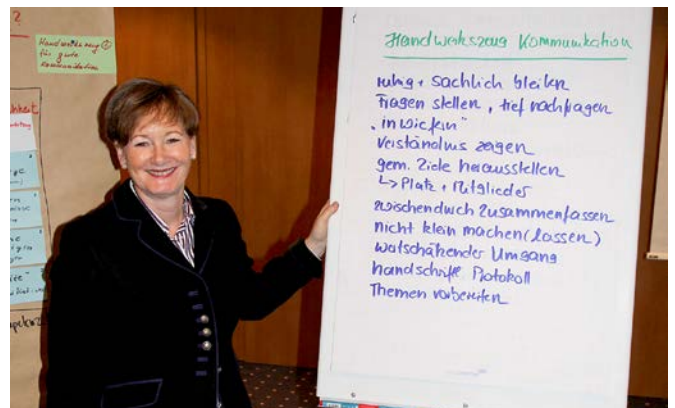 ?
Handwerkszeug
für gute
Kommunikation
Handwerkszeug Kommunikation
ruhig + sachlich bleiben
Fragen stellen, tief nachfragen
„inwiefern"
Verständnis zeigen
gem. Ziele herausstellen
↳ Platz + Mitglieder
zwischendurch zusammenfassen
nicht klein machen (lassen)
wertschätzender Umgang
handschriftl Protokoll
Themen vorbereiten